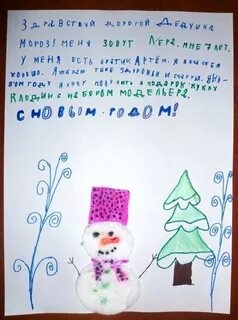 Здравствуй дорогой Дедушка
Мороз! Меня зовут Лера. Мне 7 лет.
У меня есть братик Артём. Я вела себя
хорошо. Я желаю тебе здоровья и счастья. В Но-
вом году я хочу получить в подарок куклу
Клодин с набором модельера.
С Новым годом!